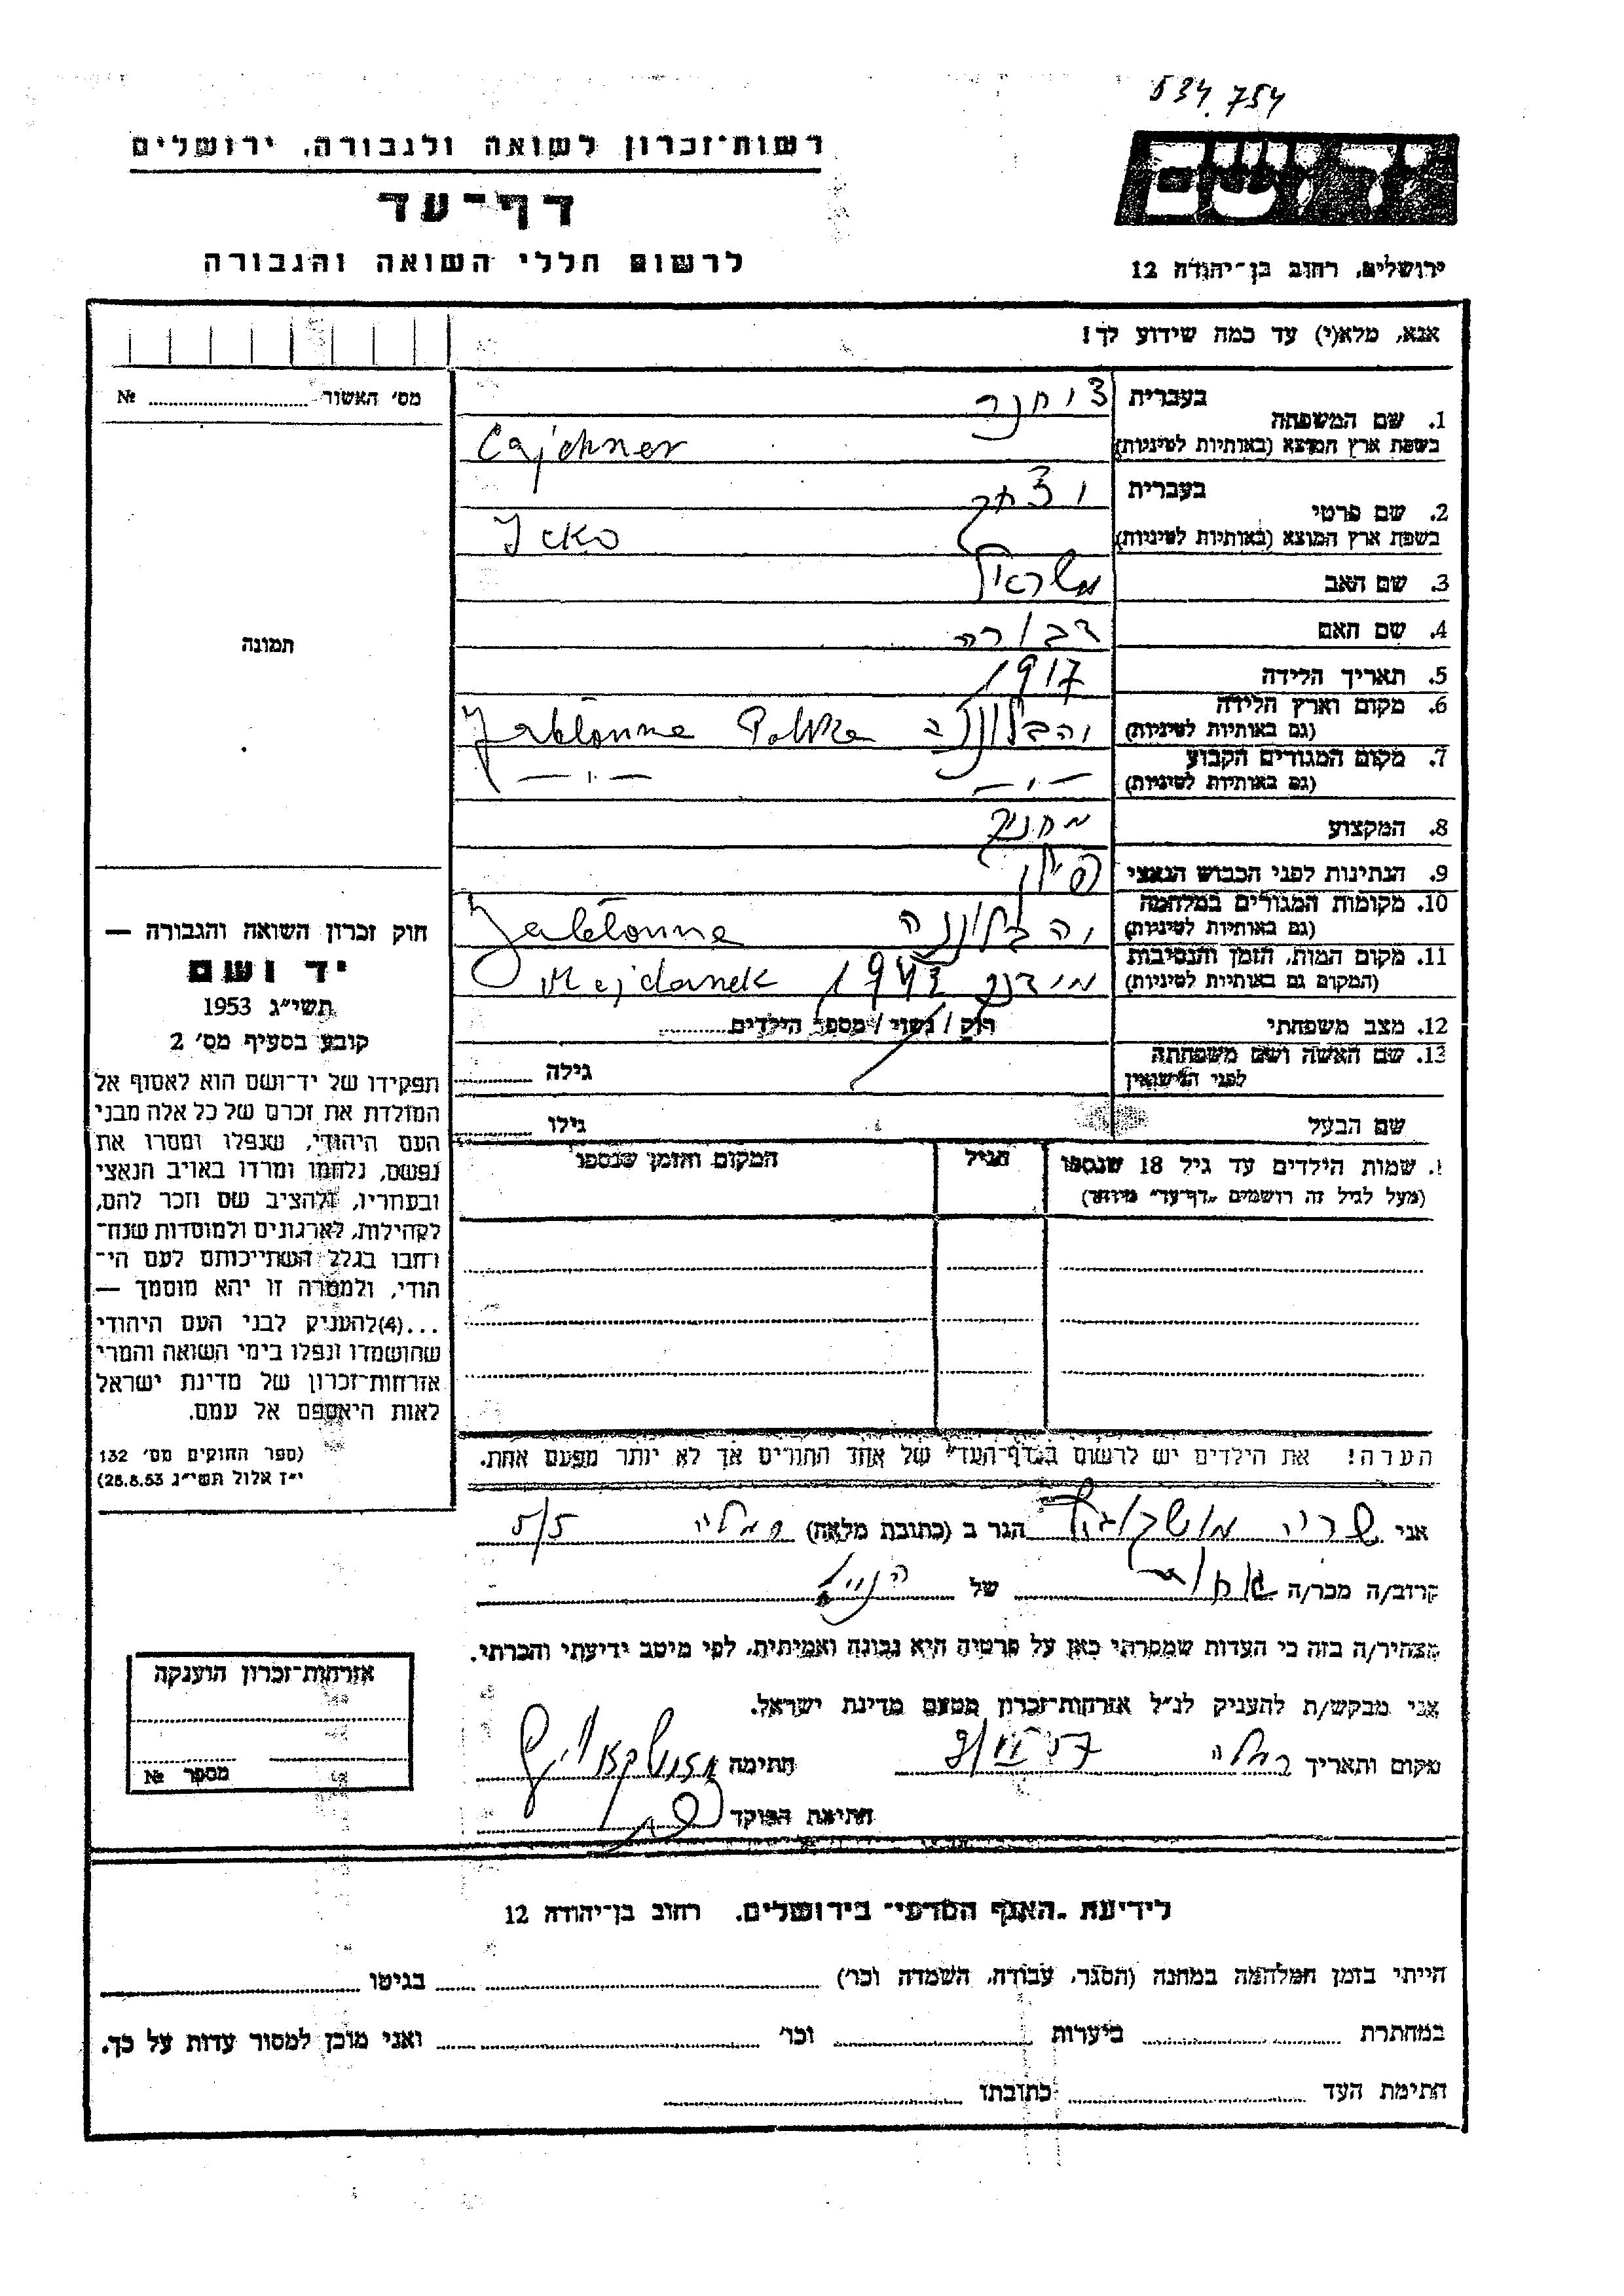 534.754
רשות־זכרון לשואה ולגבורה, ירושלים
דף־עד
לרשום חללי השואה והגבורה
יד ושם
ירושלים, רחוב בן־יהודה 12
אנא, מלא(י) עד כמה שידוע לך!
מס' האשור № 
1. שם המשפחה בעברית ציחנר
בשפת ארץ המוצא (באותיות לטיניות) Cajchner
2. שם פרטי בעברית יצחק
בשפת ארץ המוצא (באותיות לטיניות) Icko
3. שם האב ישראל
4. שם האם דבורה
5. תאריך הלידה 1917
6. מקום וארץ הלידה
(גם באותיות לטיניות) Jabłonna Polska
7. מקום המגורים הקבוע
(גם באותיות לטיניות) —״— —״—
8. המקצוע
9. הנתינות לפני הכבוש הנאצי פולין
10. מקומות המגורים במלחמה
(גם באותיות לטיניות) Jabłonna
11. מקום המות, הזמן והנסיבות
(המקום גם באותיות לטיניות) מידנק Majdanek
12. מצב משפחתי רווק / נשוי / מספר הילדים
13. שם האשה ושם משפחתה
לפני הנישואין גילה
שם הבעל גילו
שמות הילדים עד גיל 18 שנספו הגיל המקום והזמן שנספו
(מעל לגיל זה רושמים "דף־עד" מיוחד)
הערה! את הילדים יש לרשום ב"דף־העד" של אחד ההורים אך לא יותר מפעם אחת.
תמונה
חוק זכרון השואה והגבורה —
יד ושם
תשי"ג 1953
קובע בסעיף מס' 2
תפקידו של יד־ושם הוא לאסוף אל
המולדת את זכרם של כל אלה מבני
העם היהודי, שנפלו ומסרו את
נפשם, נלחמו ומרדו באויב הנאצי
ובעוזריו, ולהציב שם וזכר להם,
לקהילות, לארגונים ולמוסדות שנח־
רחבו בגלל השתייכותם לעם הי־
הודי, ולמטרה זו יהא מוסמך —
...(4) להעניק לבני העם היהודי
שהושמדו ונפלו בימי השואה והמרי
אזרחות־זכרון של מדינת ישראל
לאות היאספם אל עמם.
(ספר החוקים מס' 132
י"ז אלול תשי"ג 28.8.53)
אני שרה הגר ב (כתובת מלאה) רמלה
קרוב/ה מכר/ה אחות של הנ"ל
מצהיר/ה בזה כי העדות שמסרתי כאן על פרטיה היא נכונה ואמיתית, לפי מיטב ידיעתי והכרתי.
אני מבקש/ת להעניק לנ"ל אזרחות־זכרון מטעם מדינת ישראל.
מקום ותאריך רמלה חתימה
חתימת הפוקד
אזרחות־זכרון הוענקה
מספר №
לידיעת "האגף המדעי" בירושלים, רחוב בן־יהודה 12
הייתי בזמן המלחמה במחנה (הסגר, עבודה, השמדה וכו') בגיטו
במחתרת ביערות וכו' ואני מוכן למסור עדות על כך.
חתימת העד כתובתו